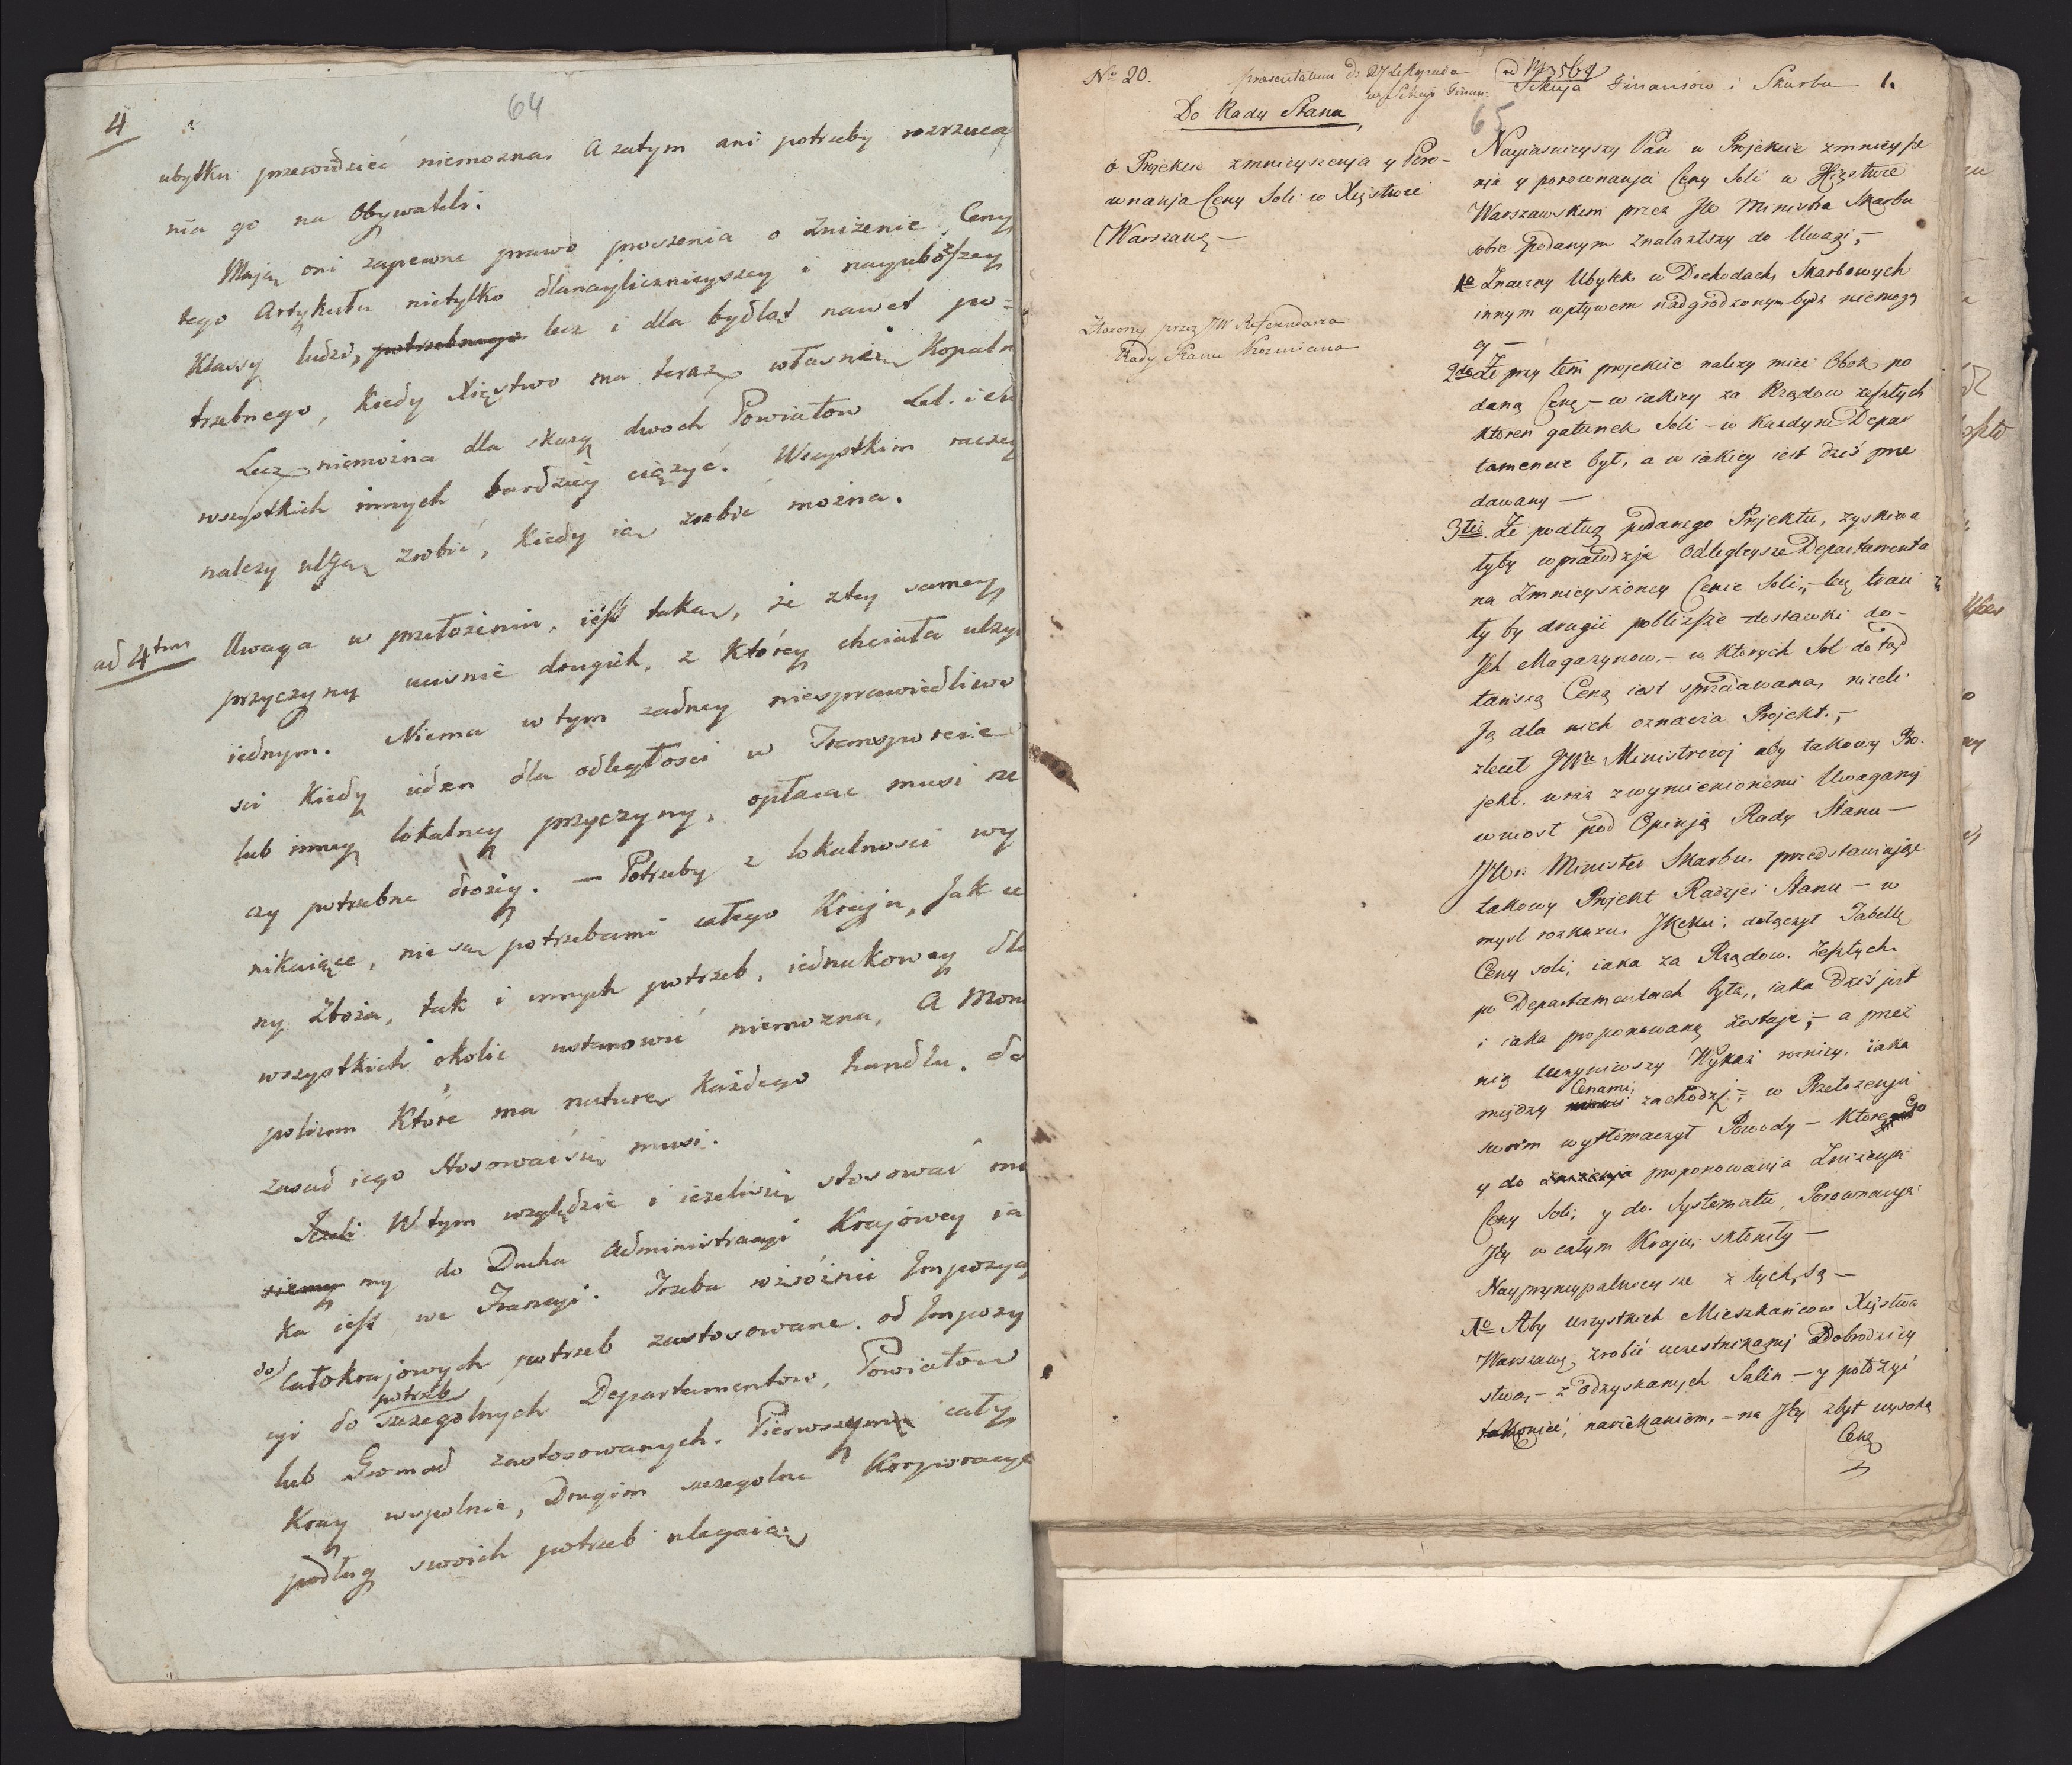 4
64
ubytku przewidzieć niemożna. A zatym ani potrzeby rozrzuca
nia go na Obywateli.
Mają oni zapewne prawo proszenia o zniżenie Ceny
tego Artykułu nietylko dlanayliczniejszey i nayubóższey
Klassy ludzi, potrzebnego lecz i dla bydląt nawet po=
trzebnego, kiedy Xięstwo ma teraz własnie Kopaln
Lecz niemożna dla dwoch Powiatow
wszystkich innych bardziey ciążyć. Wszystkim raczey
należy ulgę zrobić, kiedy ią zrobić można.
ad 4tum
Uwaga w przełożeniu, iest taka, że ztey samey
przyczyny uciśnie drugich, z którey chciała ulży
iednym. Niema w tym żadney niesprawiedliwo
ści kiedy ieden dla odległości w Transporcie
lub inney lokalney przyczyny, opłacac musi rze
czy potrzebne drożey. — Potrzeby z lokalności wy
nikaiące, nie są potrzebami całego Kraju, Jak ce
ny Zboża, tak i innych potrzeb, iednakowey dla
wszystkich okolic ustanowić niemożna, A Mono
polium Które ma naturę każdego handlu, do
zasad iego stosować się musi.
Jeżeli W tym względzie i ieżeli się stosować ma
siemy my do Ducha Administracyi Krajowey ia
ka iest we Francyi. Trzeba rozróżnić Impozyc
do całokrajowych potrzeb zastosowane. od Impozy
potrzeb
cyi do szczegolnych Departamentow, Powiatow
lub Gromad zastosowanych. Pierwszym cały
Kray wspolnie, Drugim szczegolne Korporacye
podług swoich potrzeb ulegaią
No 20.
praesentatum d: 27 Listopada
w Sekcyi Finan:
ad No 3564
Sekcyja Finansów i Skarbu
1.
65
Do Rady Stanu
o Projekcie zmnieyszenja y Poro-
wnanja Ceny Soli w Xięstwie
Warszawę —
Złożony przez JW Referendarza
Rady Stanu Kozmiana
Nayiasnieyszy Pan w Projekcie zmnieysze
nia y porownanja Ceny Soli w Xięstwie
Warszawskim przez JW Ministra Skarbu
sobie podanym znalazłszy do Uwagi, —
1o Znaczny Ubytek w Dochodach Skarbowych
innym wpływem nadgrodzonym bydz niemogą
cy —
2do Że przy tem projekcie należy mieć Obok po
daną Cenę — w iakiey za Rządow zeszłych
ktoren gatunek Soli — w każdym Depar
tamencie był, a w iakiey iest dziś prze
dawany —
3tio Że podług podanego Projektu, zyskiwa
łyby wprawdzje Odlegleysze Departamenta
na zmnieyszoney Cenie Soli, — lecz traci
ły by drugie pobliższe dostawki do-
Jch Magazynow, — w ktorych Sol dotąd
tańszą Ceną iest sprzedawana, nizeli
Ją dla nich oznacza Projekt, —
zlecił JWu Ministrowj aby takowy Pro-
jekt wraz z wymienionemi Uwagamj
wniosł pod Opinją Rady Stanu —
JW: Minister Skarbu przedstawiając
takowy Projekt Radzjei Stanu — w
mysl rozkazu JKMci, dołączył Tabellę
Ceny soli, iaka za Rządow Zeszłych
po Departamentach była, iaka dziś jest
i iaka proponowaną zostaje; — a przez
nią uczyniwszy Wykaz roznicy, iaka
Cenami
między zachodzj — w Przełożenju
swoim wytłomaczył Powody — Ktore Go
y do proponowanja Zniżenja
Ceny Soli, y do Systematu, Porownanja
Jey w całym Kraju, skłoniły —
Nayprzyncypalnieysze z tych są —
1o Aby wszystkich Mieszkańcow Xięstwa
Warszawę zrobić uczestnikamj Dobrodziey
stwa, — z odzyskanych Salin — y położyć
koniec narzekaniom, — na Jey zbyt wysoką
Cenę